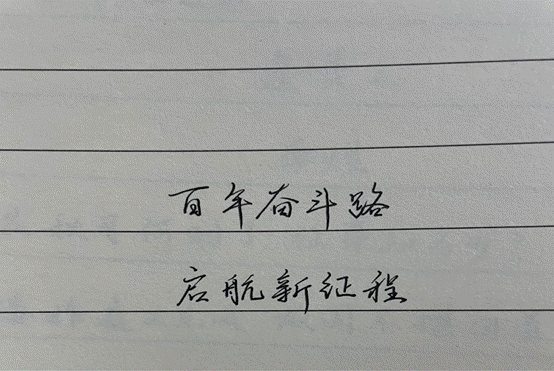 百年奋斗路
启航新征程